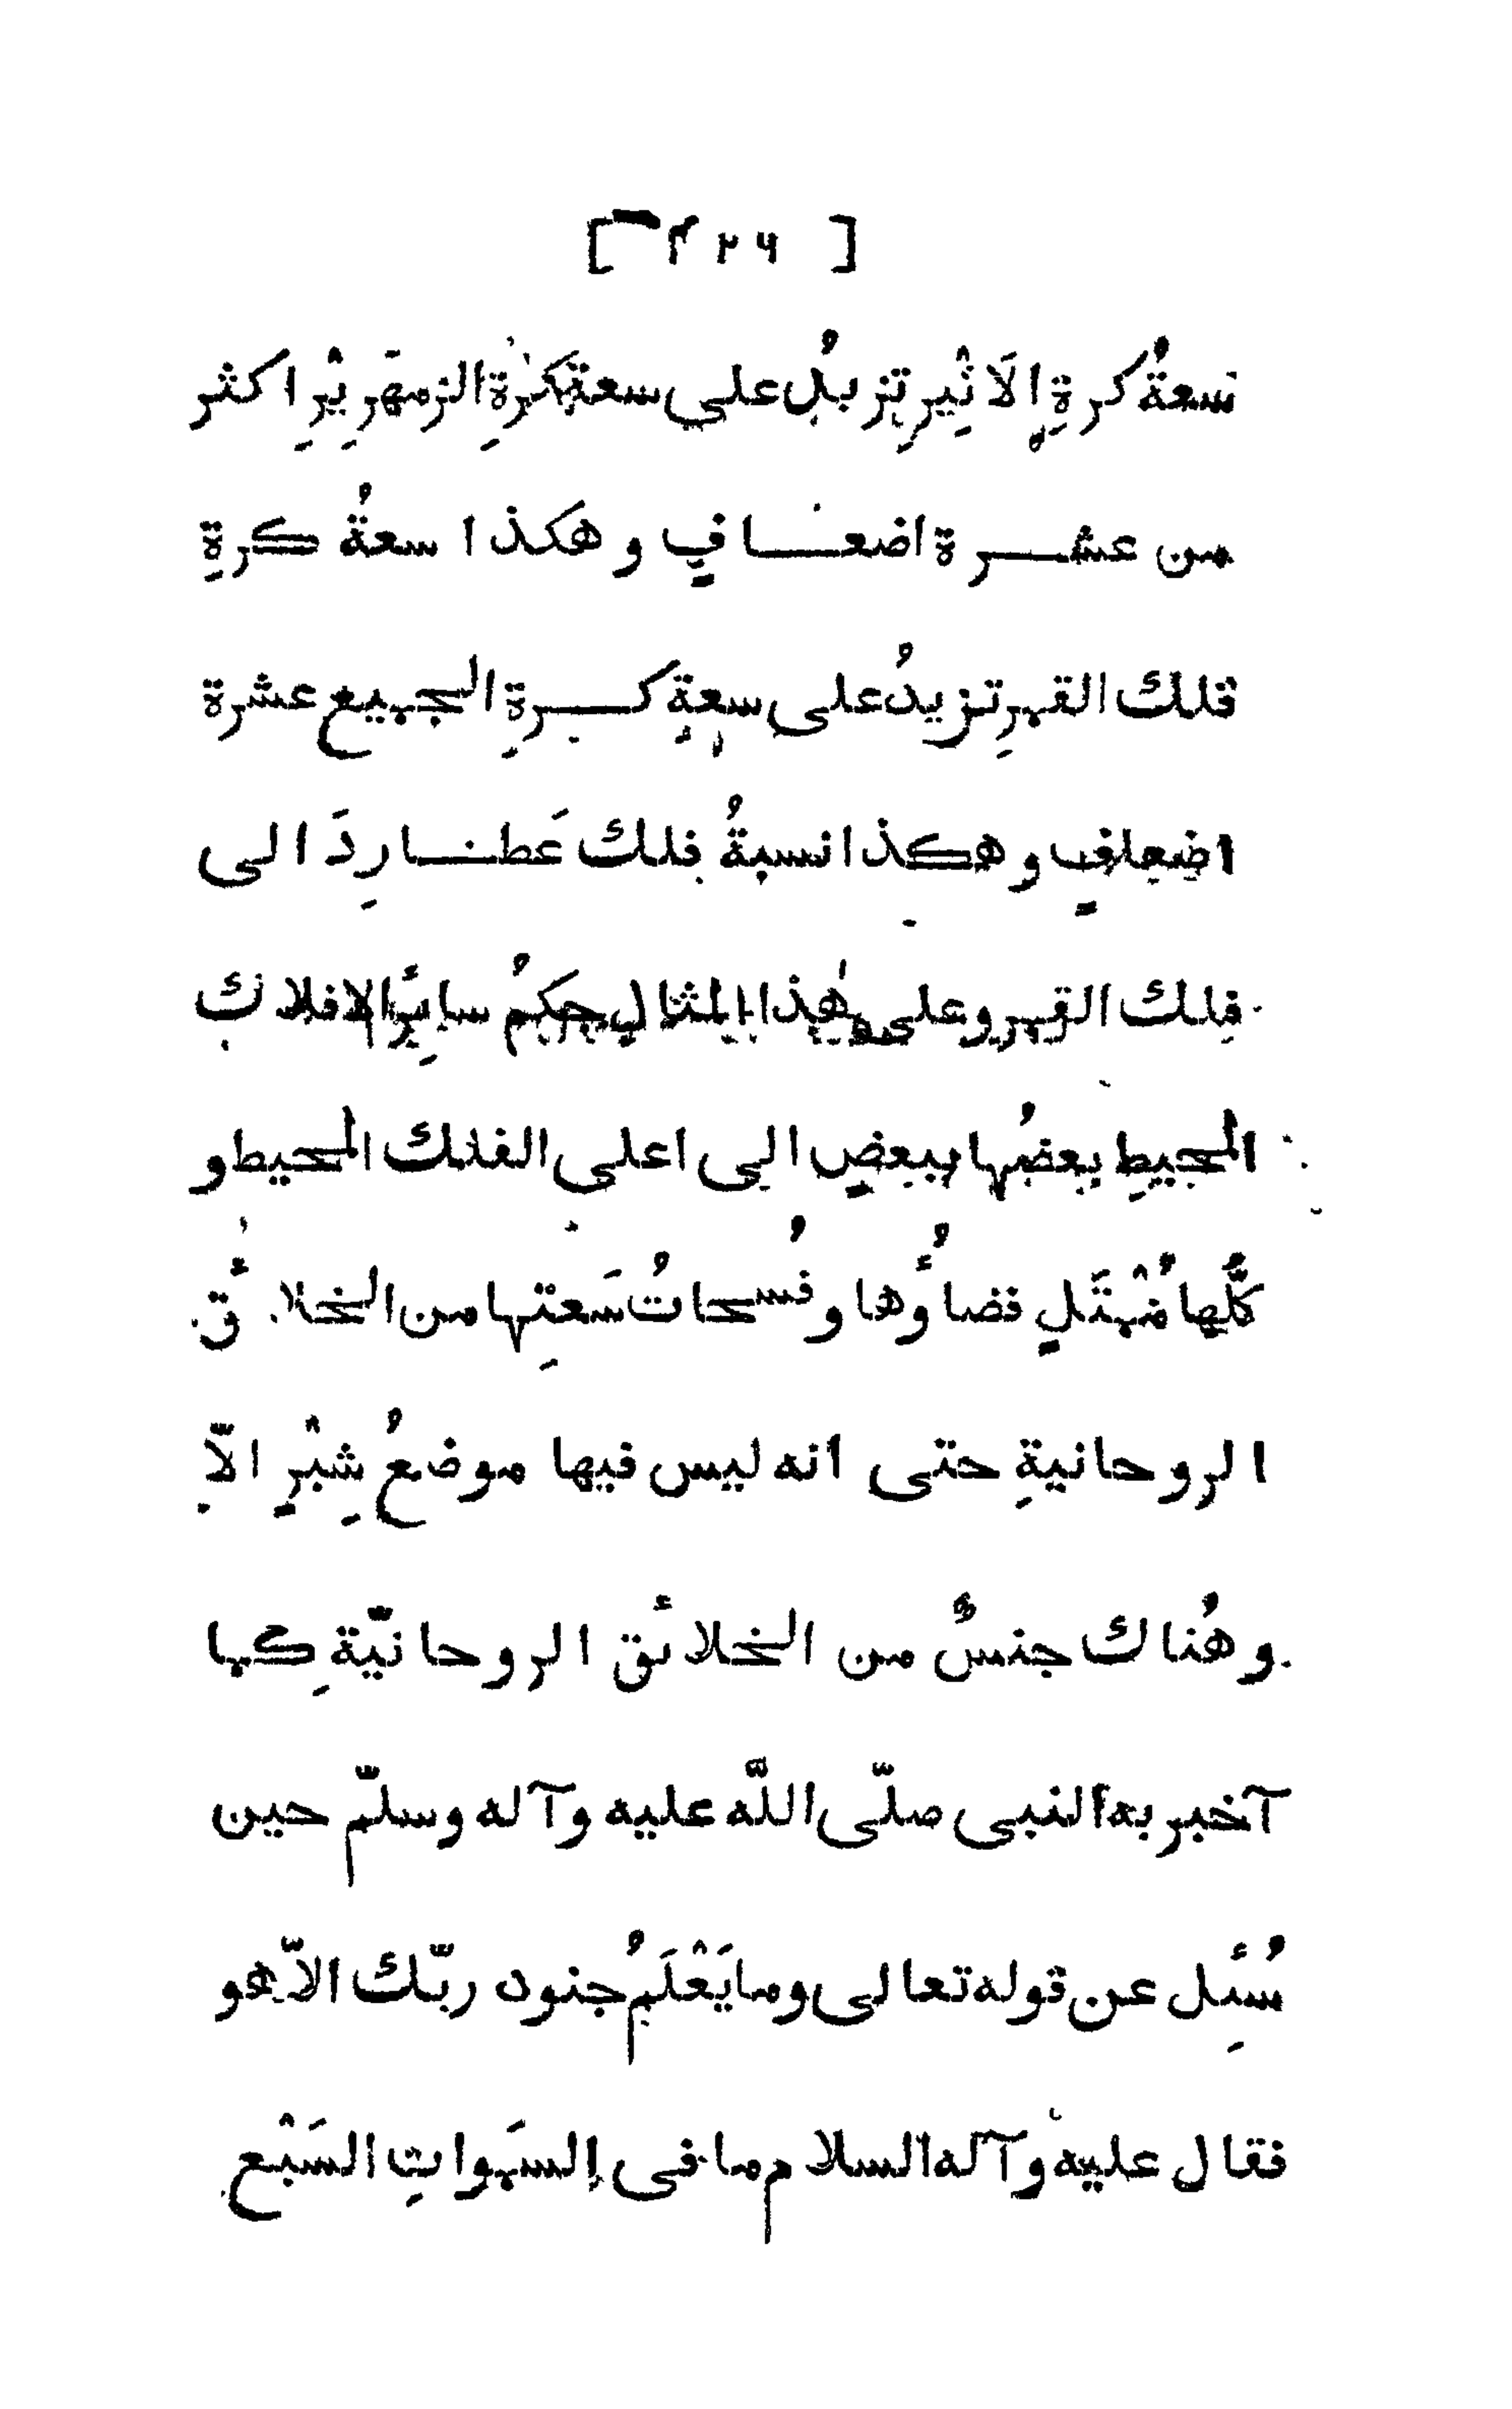 [ ٣٢٦ ]
سعةُ كرةِ الاَثْيِرِ تزيدُ على سعة كرةِ الزمهَرِيْرِ اكثر
من عشرة اضعافٍ وهكذا سعةُ كرةِ
فلك القمرِ تزيدُ على سعةِ كرةِ الجميع عشرة
اضعافٍ وهكذا نسبةُ فلك عَطارِدَ الى
فلك القمر وعلى هٰذا المثال حكمُ سائِر الافلاك
المحيطِ بعضُها ببعضٍ الى اعلى الفلك المحيط و
كلُّها مُمْتَلٍ فضاؤُها وفُسحاتُ سَعتِها من الخلائق
الروحانيةِ حتى انه ليس فيها موضعُ شِبْرٍ الاّ
وهُناك جنسٌ من الخلائق الروحانيّةِ كما
آخبر به النبى صلّى اللّه عليه وآله وسلّم حين
سُئِل عن قوله تعالى وما يَعْلَمُ جنود ربّك الاّ هو
فقال عليه وآله السلام ما فى السَموات السَبْع